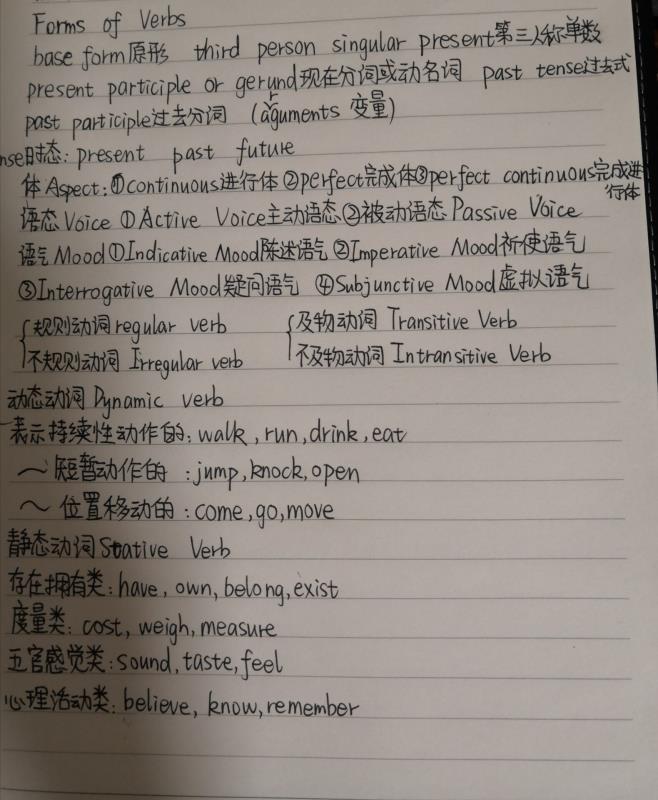 Forms of Verbs
base form原形 third person singular present第三人称单数
present participle or gerund现在分词或动名词 past tense过去式
past participle过去分词 (arguments 变量)
nse时态: present past future
体 Aspect: ①continuous进行体 ②perfect完成体③perfect continuous完成进行体
语态 Voice ①Active Voice主动语态②被动语态 Passive Voice
语气 Mood①Indicative Mood陈述语气 ②Imperative Mood祈使语气
③Interrogative Mood疑问语气 ④Subjunctive Mood虚拟语气
规则动词 regular verb 及物动词 Transitive Verb
不规则动词 Irregular verb 不及物动词 Intransitive Verb
动态动词 Dynamic verb
表示持续性动作的: walk, run, drink, eat
~短暂动作的: jump, knock, open
~位置移动的: come, go, move
静态动词 Stative Verb
存在拥有类: have, own, belong, exist
度量类: cost, weigh, measure
五官感觉类: sound, taste, feel
心理活动类: believe, know, remember